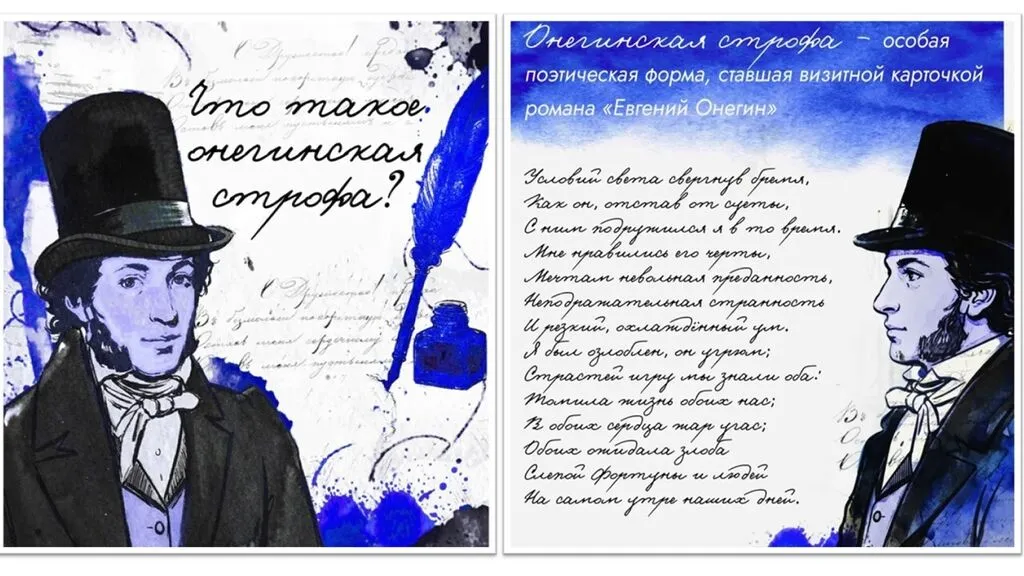 Что такое
онегинская
строфа?
Онегинская строфа – особая
поэтическая форма, ставшая визитной карточкой
романа «Евгений Онегин»
Условий света свергнув бремя,
Как он, отстав от суеты,
С ним подружился я в то время.
Мне нравились его черты,
Мечтам невольная преданность,
Неподражательная странность
И резкий, охлаждённый ум.
Я был озлоблен, он угрюм;
Страстей игру мы знали оба:
Томила жизнь обоих нас;
В обоих сердца жар угас;
Обоих ожидала злоба
Слепой Фортуны и людей
На самом утре наших дней.